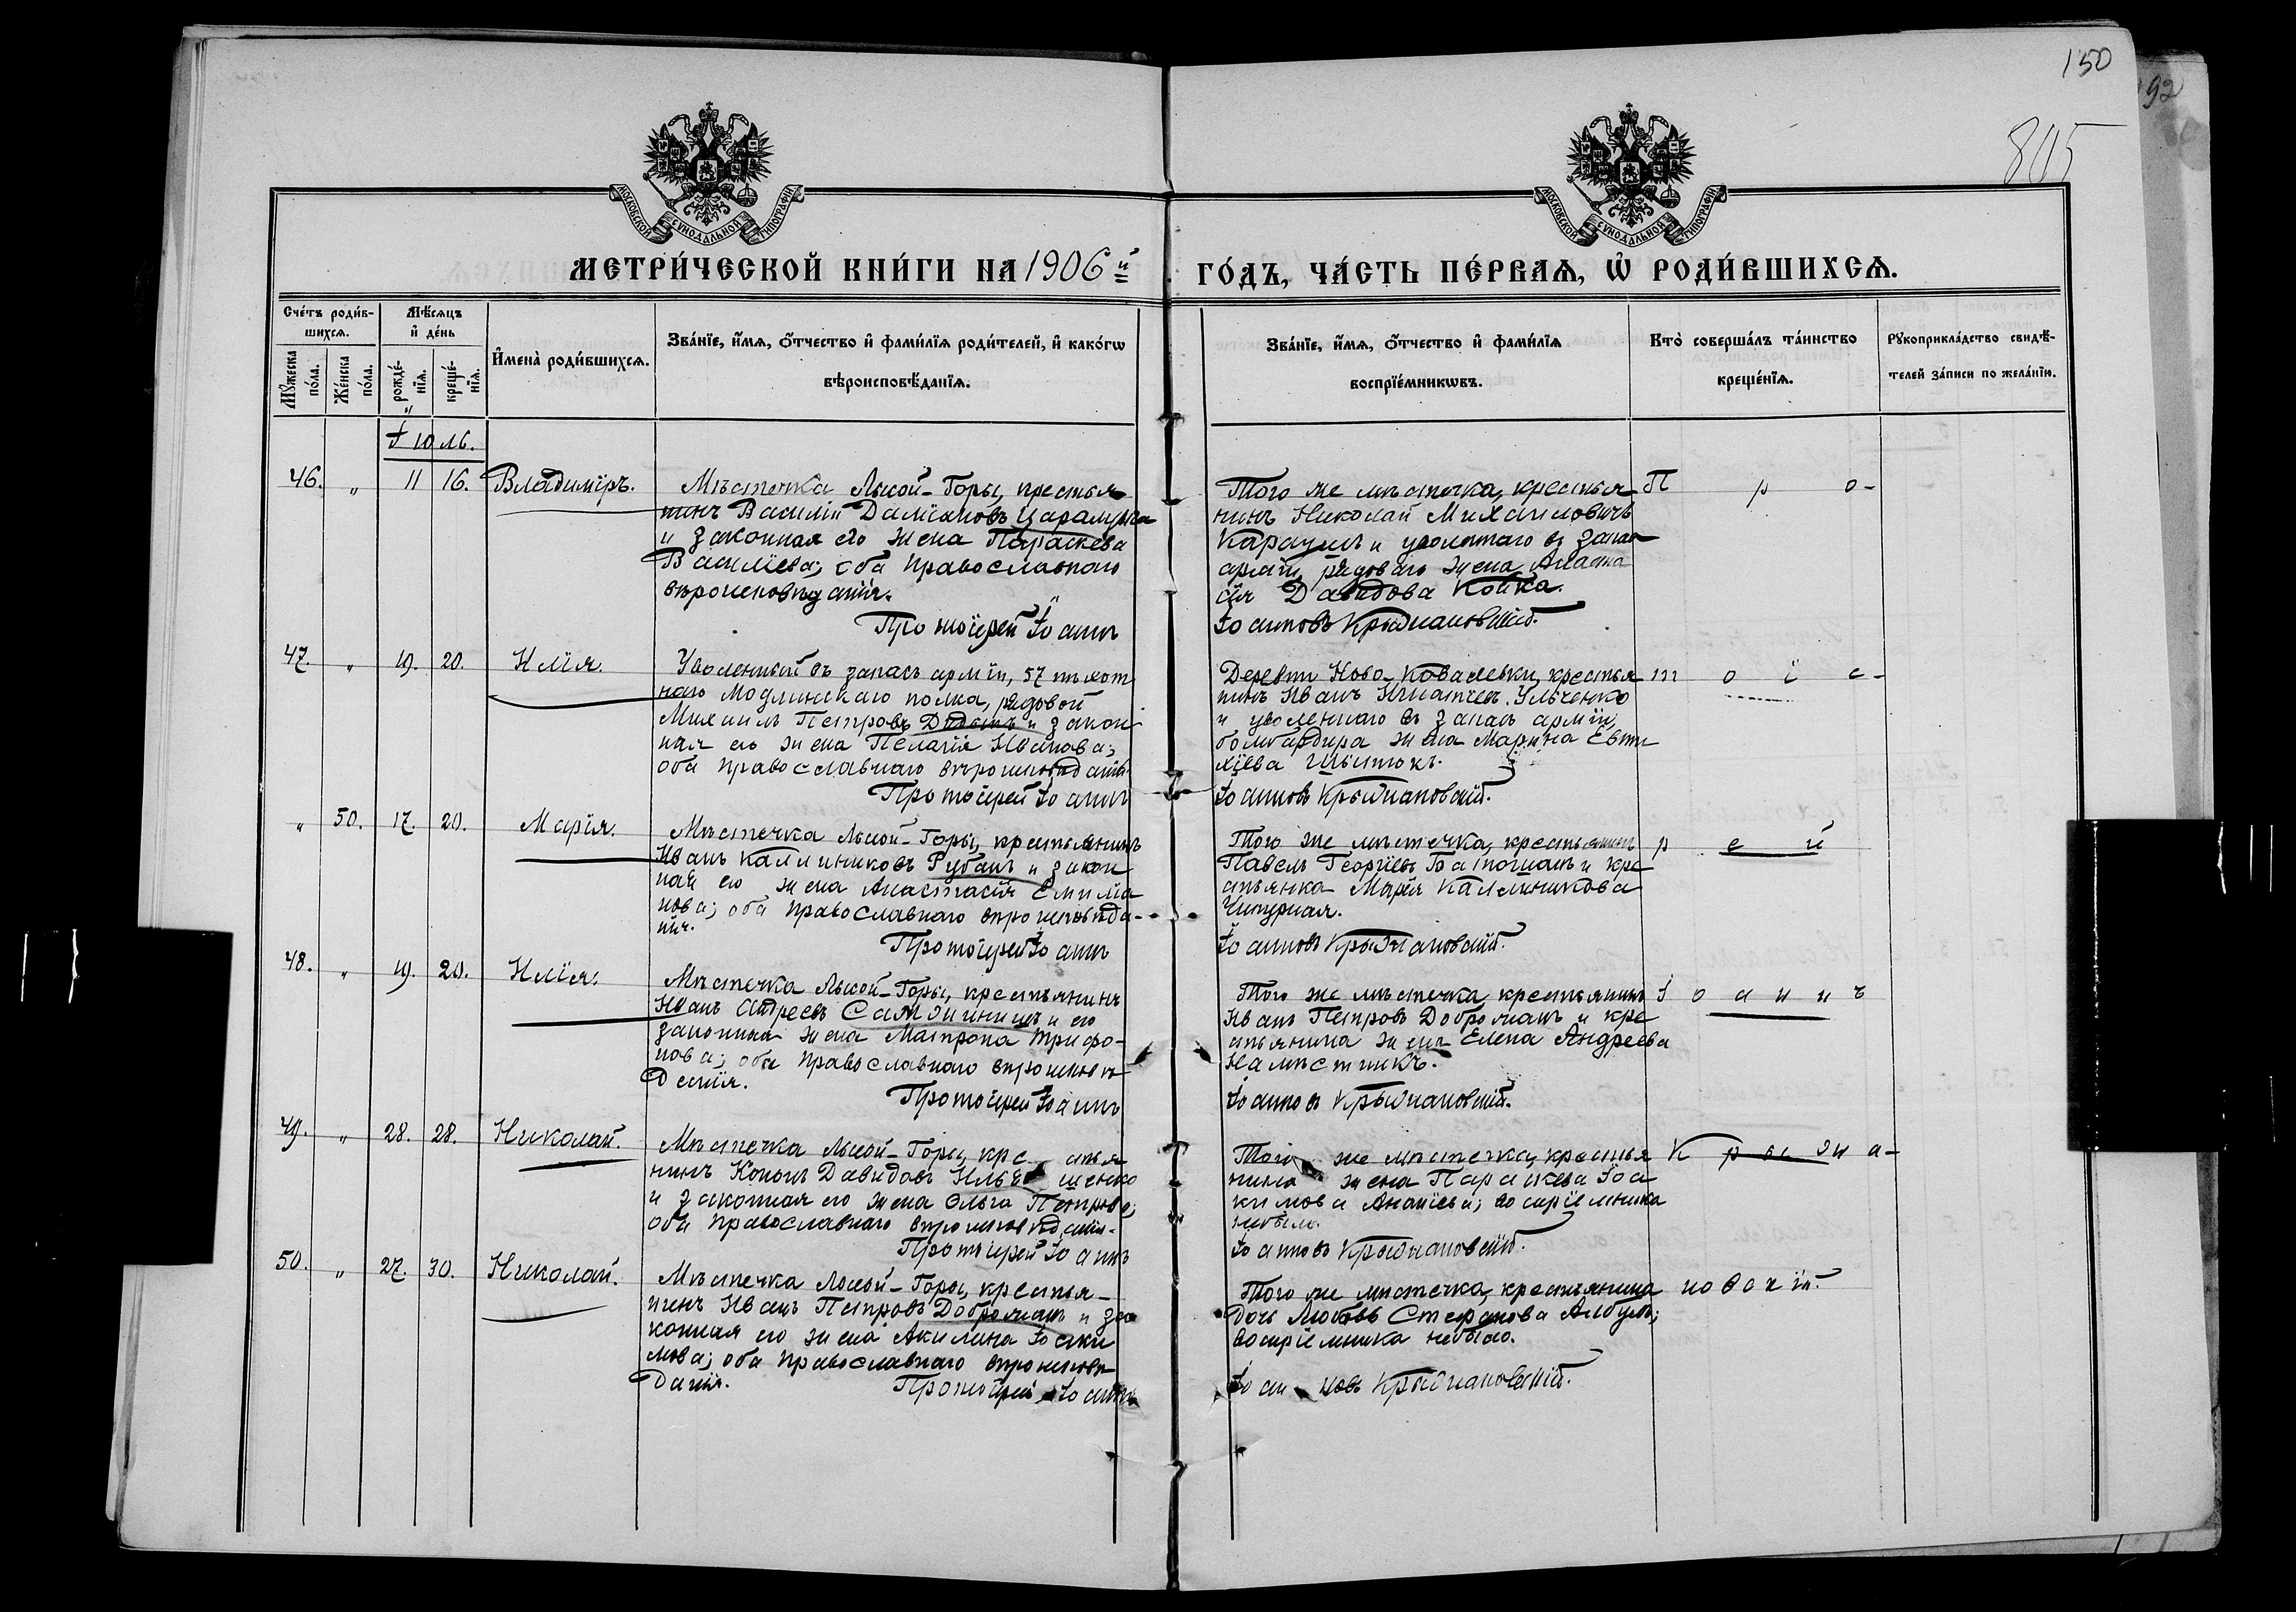 150
92
805
МОСКОВСКОЙ СУНОДАЛЬНОЙ ТИПОГРАФІИ
МОСКОВСКОЙ СУНОДАЛЬНОЙ ТИПОГРАФІИ
МЕТРИ́ЧЕСКОЙ КНИ́ГИ НА 1906й ГО́ДЪ, ЧА́СТЬ ПЕ́РВАѦ, Ѡ҆ РОДИ́ВШИХСѦ.
Сче́тъ роди́в-
шихсѧ.
Мꙋ́жеска по́ла.
Же́нска по́ла.
Мѣ́сѧцъ
и҆ де́нь
рожде́-
нїѧ.
креще́-
нїѧ.
И҆мена̀ роди́вшихсѧ.
Зва́нїе, и҆́мѧ, ѻ҆́тчество и҆ фами́лїѧ роди́телей, и҆ како́гѡ
вѣроисповѣ́данїѧ.
Зва́нїе, и҆́мѧ, ѻ҆́тчество и҆ фами́лїѧ
воспрїе́мникѡвъ.
Кто̀ соверша́лъ та́инство
креще́нїѧ.
Рꙋкоприкла́дство свидѣ́-
телей за́писи по жела́нїю.
Іюль.
46. " 11 16. Владиміръ.
Мѣстечка Лысой-Горы, крестья
нинъ Василій Даміановъ
и законная его жена Параскева
Василіева; оба православнаго
вѣроисповѣданія.
Протоіерей Іоаннъ
Того же мѣстечка, крестья
нинъ Николай Михаиловичъ
Караулъ и уволеннаго въ запас
арміи рядоваго жена Анаста
сія Давидова Койка.
Іоанновъ Крыжановскій.
П р о-
47. " 19. 20. Илія.
Уволенный въ запасъ арміи, 57 пѣхот
наго Модлинскаго полка, рядовой
Михаилъ Петровъ и закон
ная его жена Пелагія Иванова;
оба православнаго вѣроисповѣданія.
Протоіерей Іоаннъ
Деревни Ново-Ковалевки, крестья
нинъ Иванъ Игнатіевъ Ульченко
и уволеннаго въ запасъ арміи,
бомбардира жена Марина Евти
хіева
Іоанновъ Крыжановскій.
т о і е-
" 50. 17. 20. Марія.
Мѣстечка Лысой-Горы, крестьянинъ
Иванъ Каллиниковъ Рубанъ и закон
ная его жена Анастасія Емилiа
нова; оба православнаго вѣроисповѣда-
нія.
Протоіерей Іоаннъ
Того же мѣстечка, крестьянинъ
Павелъ Георгіевъ и кре
стьянка Марія Каллиникова
Чипурная.
Іоанновъ Крыжановскій.
р е й
48. " 19. 20. Илія.
Мѣстечка Лысой-Горы, крестьянинъ
Иванъ Андреевъ и его
законная жена Матрона Трифо-
нова; оба православнаго вѣроисповѣ
данія.
Протоіерей Іоаннъ
Того же мѣстечка, крестьянинъ
Иванъ Петровъ Доброжанъ и кре
стьянина жена Елена Андреева
Намѣстникъ.
Іоанновъ Крыжановскій.
І о а н н ъ
49. " 28. 28. Николай.
Мѣстечка Лысой-Горы, крестья
нинъ Кононъ Давидовъ Ильяшенко
и законная его жена Ольга Петрова;
оба православнаго вѣроисповѣданія.
Протоіерей Іоаннъ
Того же мѣстечка, крестья
нина жена Параскева Іоа
кимова Ананіева; воспріемника
небыло.
Іоанновъ Крыжановскій.
К р ы ж а-
50. " 27. 30. Николай.
Мѣстечка Лысой-Горы, крестья-
нинъ Иванъ Петровъ Доброжанъ и за
конная его жена Акилина Іоаки
мова; оба православнаго вѣроисповѣ
данія. Протоіерей Іоаннъ
Того же мѣстечка, крестьянина
дочь Любовь Стефанова Албулъ;
воспріемника небыло.
Іоанновъ Крыжановскій.
новскій.